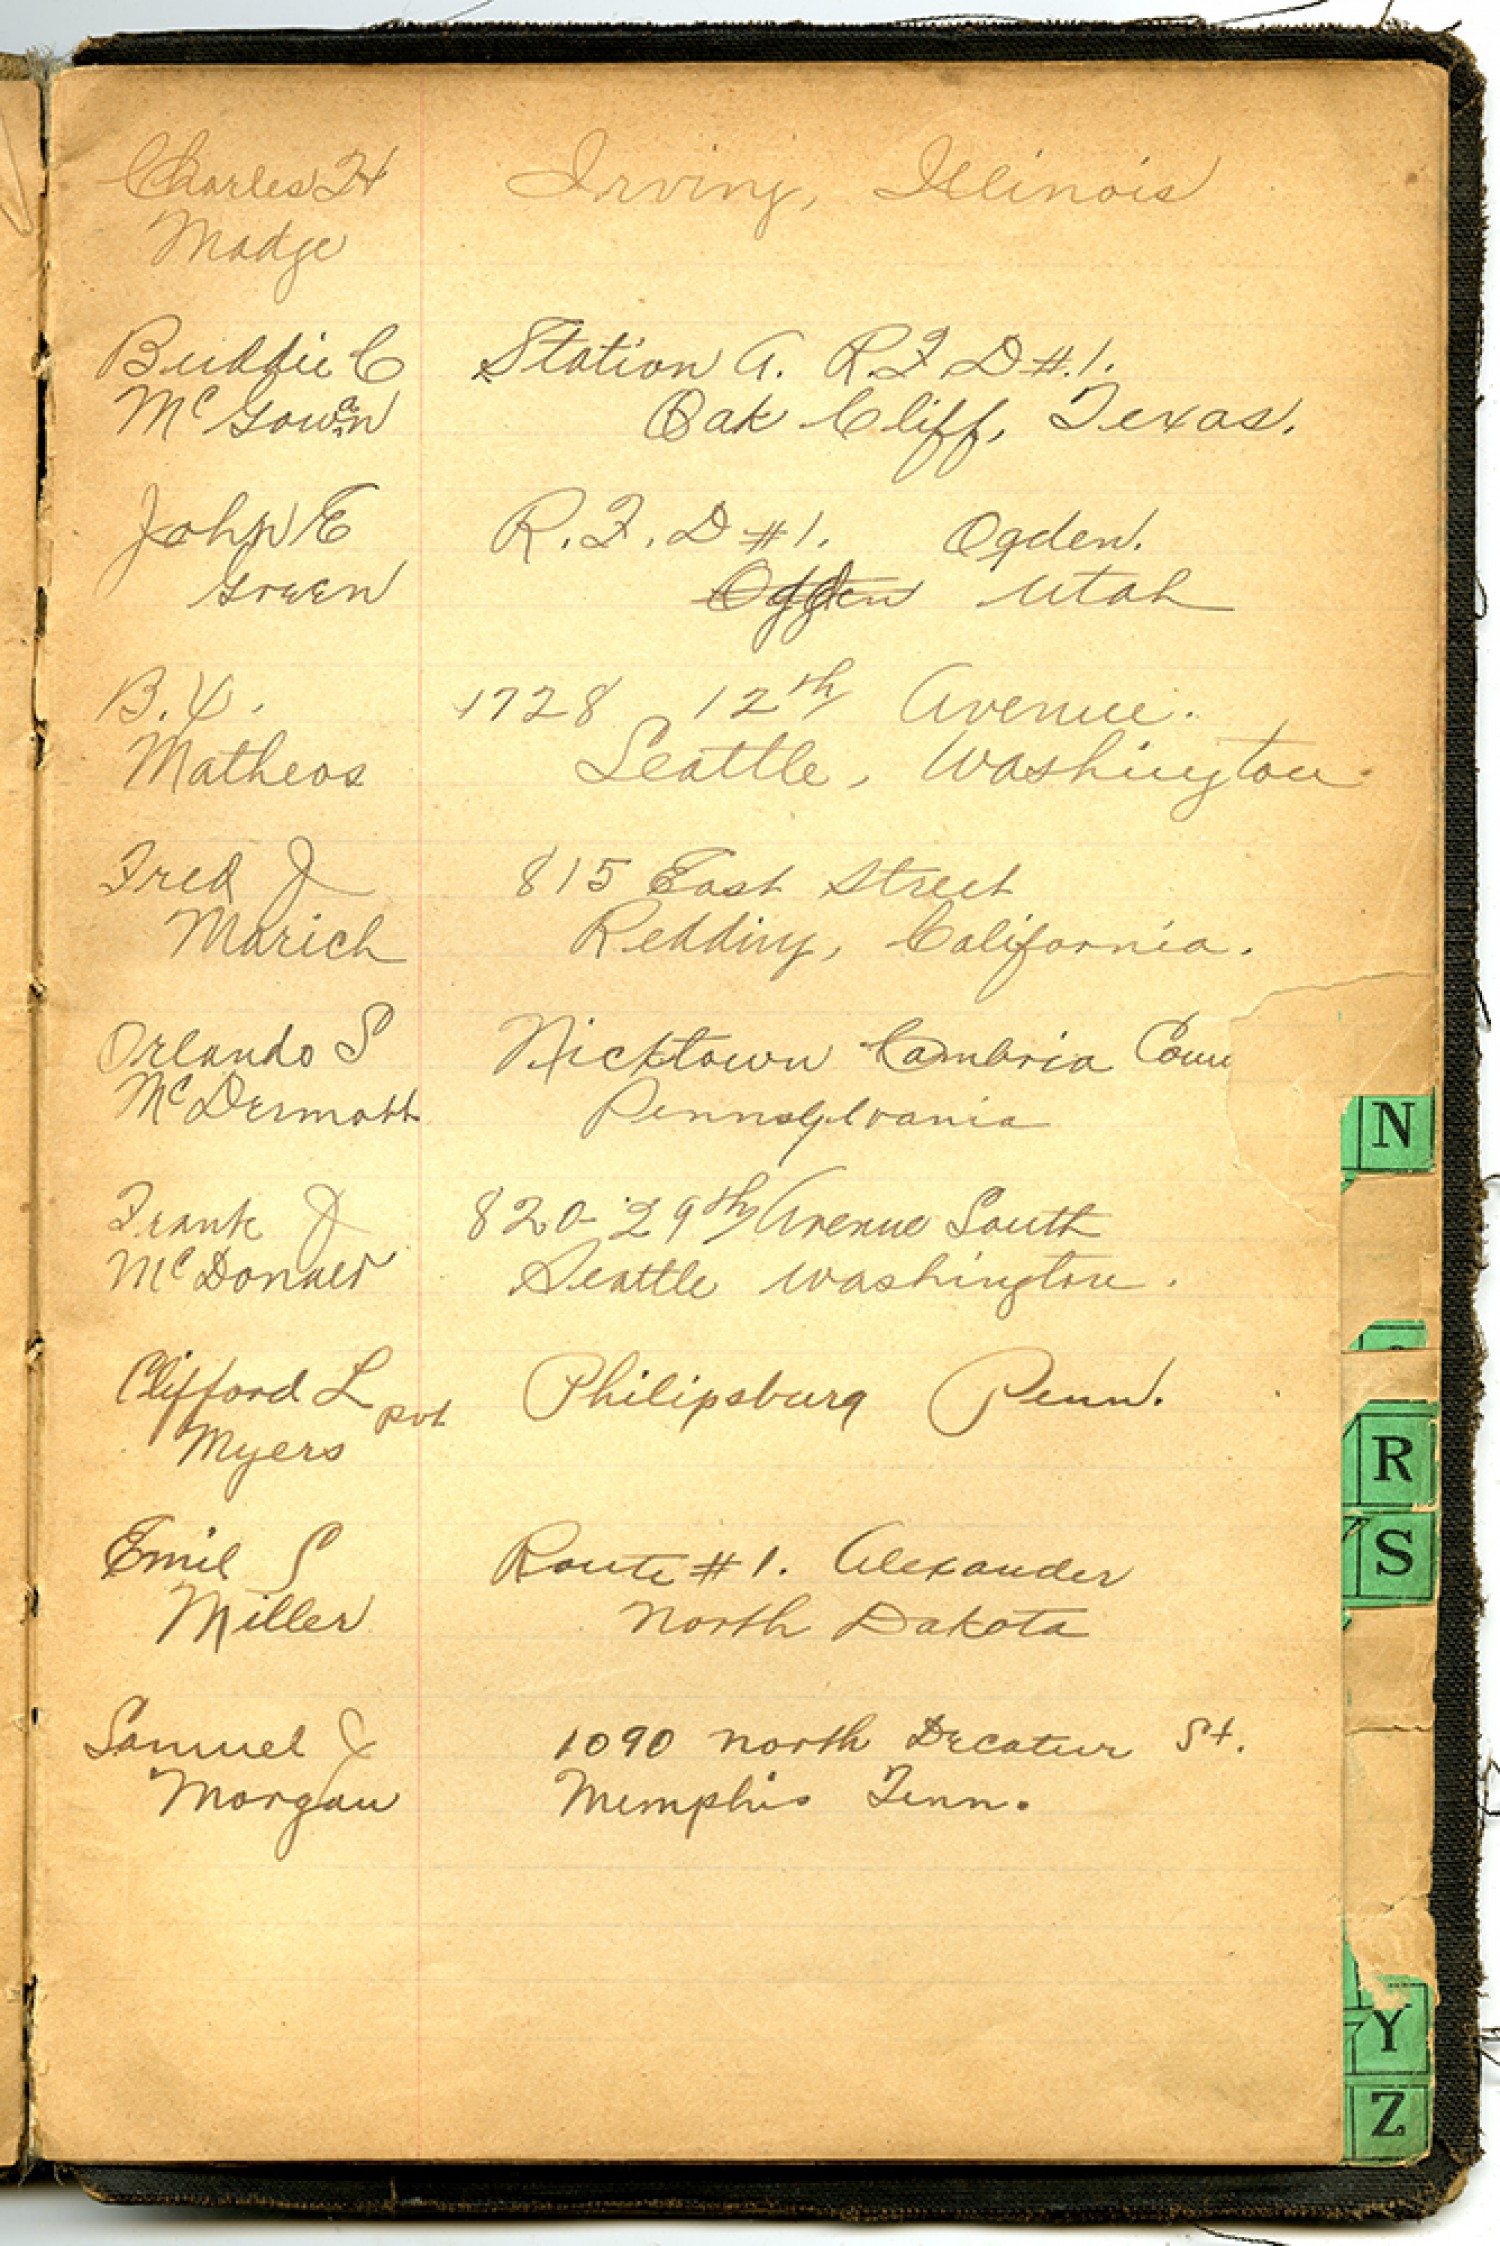 Charles H Irving, Illinois
Madge
Buddie C Station A. R.F.D #1.
Mc Gowan Oak Cliff, Texas.
John E R.F.D #1. Ogden.
Green Ogden Utah
B. Y. 1728 12th Avenue.
Matheos Seattle, Washington
Fred J 815 East Street
Marich Redding, California.
Orlando S Nicktown Cambria Coun
McDermott Pennsylvania
Frank J 820-29th Avenue South
McDonald Seattle Washington.
Clifford L Pvt Philipsburg Penn.
Myers
Emil S Route #1. Alexander
Miller North Dakota
Samuel J 1090 North Decatur St.
Morgan Memphis Tenn.
N
R
S
Y
Z